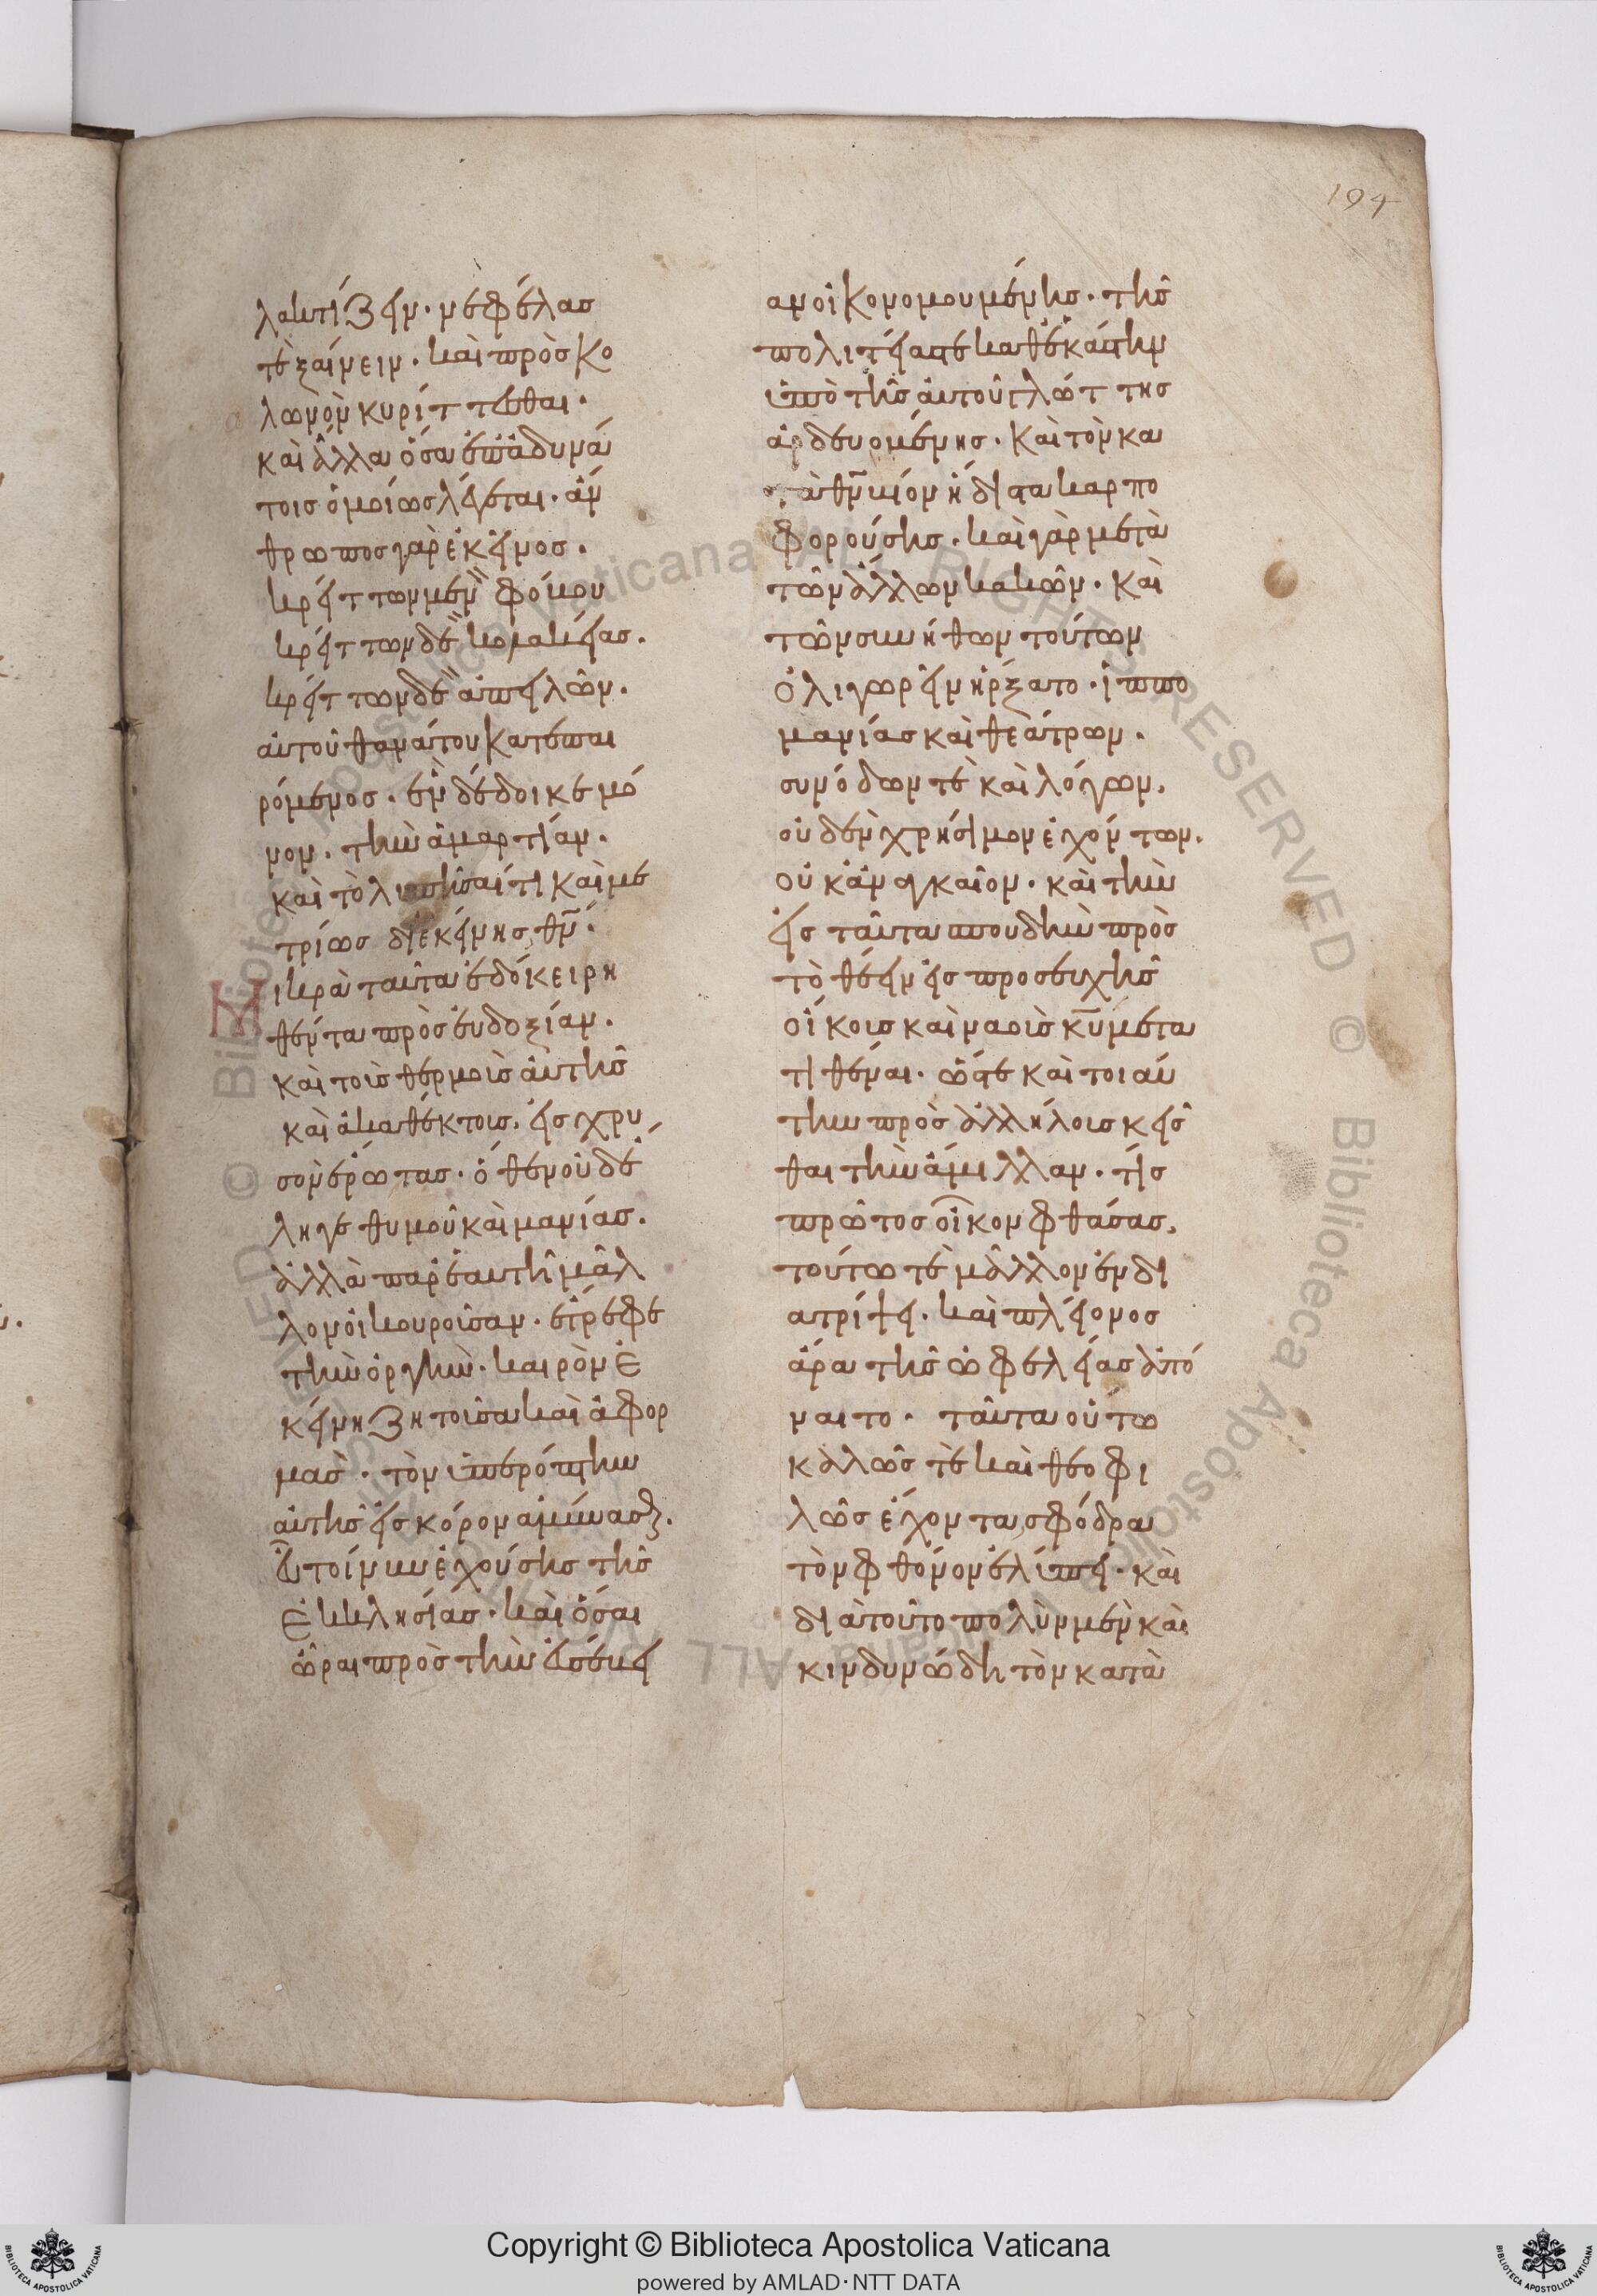 194
λακτίζειν· νεφέλας
τε ξαίνειν· καὶ πρὸς κο
λωνὸν κυρίττεσθαι·
καὶ ἄλλα ὅσα ἐπ ἀδυνά
τοις ὁμοίως λέγεται· ἄν
θρωπος γὰρ ἐκεῖνος·
κρείττων μὲν φόνου
κρείττων δὲ κολακείας·
κρείττων δὲ ἀπειλῶν·
αὐτοῦ θανάτου κατεπαι
ρόμενος· ἓν δέδοικε μό
νον· τὴν ἁμαρτίαν·
καὶ τὸ λυπῆσαί τι καὶ με
τρίως διεκείνης θν·
Μικρὰ ταῦτα ἐδόκει ρη
θέντα πρὸς εὐδοξίαν·
καὶ τοῖς θερμοῖς αὐτῆς
καὶ ἀκαθέκτοις, εἰς χρυ
σὸν ἔρωτας· ὅθεν οὐδὲ
ληγε θυμοῦ καὶ μανίας·
ἀλλὰ παρ ἑαυτῆ μᾶλ
λον οἰκουροῦσαν· ἔτρεφε
τὴν ὀργὴν· καιρὸν ἐ
κείνη ζητοῦσα καὶ ἀφορ
μὰς· τὸν ὑπερόπτην
αὐτῆς εἰς κόρον ἀμύνασθ·
Ὡ τοίνυν ἐχούσης τῆς
ἐκκλησίας· καὶ ὅσαι
ὧραι πρὸς τὴν ἐσέκει
αν οἰκονομουμένης· τῆς
πολιτείας τε καθ ἑκάστην
ὑπὸ τῆς αὐτοῦ γλώττης
ἀρδευομένης· καὶ τὸν κα
τὰ θν κιόν ἥδιστα καρπο
φορούσης· καὶ γὰρ μετὰ
τῶν ἄλλων κακῶν· καὶ
τῶν συνήθων τούτων
ὀλιγωρεῖν ἤρξατο· ἱππο
μανίας καὶ θεάτρων·
συνόδων τὲ καὶ λόγων,
οὐδὲν χρήσιμον ἐχόντων·
οὐκ ἀναγκαῖον· καὶ τὴν
εἰς ταῦτα σπουδὴν πρὸς
τὸ θέειν εἰς προσευχῆς
οἴκους καὶ ναοὺς κυ μετα
τιθέναι· ὥστε καὶ τοιαύ
την πρὸς ἀλλήλους κεῖσ
θαι τὴν ἅμιλλαν· τίς
πρῶτος οἶκον φθάσας,
τούτω τὲ μᾶλλον ἐνδι
ατρίψει· καὶ πλείονος
ἄρα τῆς ὠφελείας ἀπό
ναιτο· ταῦτα οὕτω
καλῶς τὲ καὶ θεοφι
λῶς ἔχοντα, σφόδρα
τὸν φθόνον ἐλύπει· καὶ
διὰ τοῦτο πολὺν μὲν καὶ
κινδυνώδη τὸν κατὰ
Copyright © Biblioteca Apostolica Vaticana
powered by AMLAD·NTT DATA